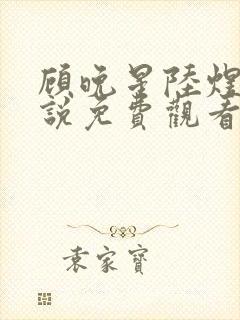 顾晚星陸煌
說免費觀看
袁家寶